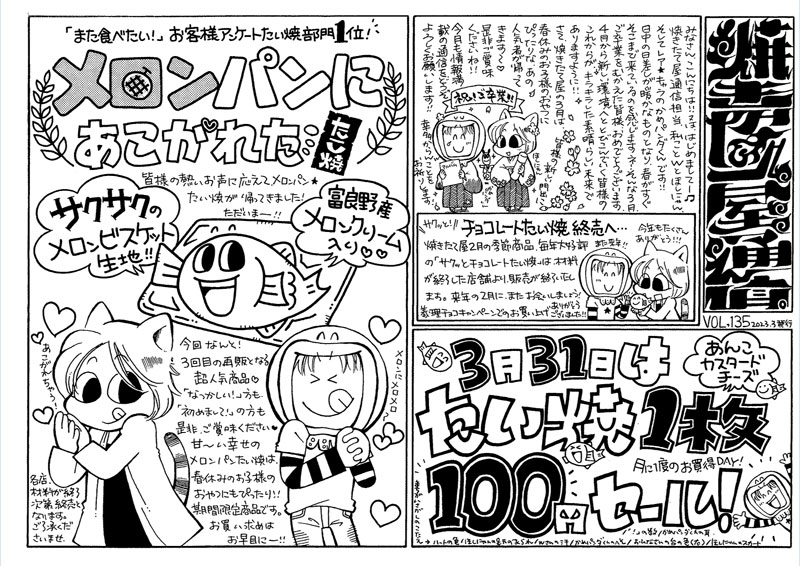 焼きたて屋通信
VOL.135 2023.3発行
みなさんこんにちは!!そしてはじめまして〜♪
焼きたて屋通信担当、私ことんとほしにゃん
そしてレアキャラのひめパンダくんです!!
日中の日差しが暖かなものとなり、春がすぐ
そこまで来ているのを感じますネ。そんな3月
ご卒業をむかえた皆様おめでとうございます。
4月から新しい環境へととびこんでいく皆様の
これからがキラキラした素晴らしい未来で
ありますように…!
さて、焼きたて屋の3月は
春休みのお子様のおやつに
ぴったりな、あの
人気者が帰って
きます〜♡
是非ご賞味
くださいね!!
今月も情報満
載の通信をどうぞ
よろしくお願いします!!
祝!ご卒業!!
サクッと!!
チョコレートたい焼 終売へ…
焼きたて屋2月の季節商品、毎年大好評
の「サクっとチョコレートたい焼」は材料
が終了した店舗より、販売が終了いたし
ます。来年の2月に、またお会いしましょう!
義理チョコキャンペーンでのお買い上げありがとうございました!!
また来年!!
今年もたくさん
ありがとう!!!
「また食べたい!」お客様アンケートたい焼部門1位!
メロンパンに
あこがれた…
たい焼
皆様の熱いお声に応えてメロンパン★
たい焼が帰ってきました!
ただいまー!!
サクサクの
メロンビスケット
生地!!
富良野産
メロンクリーム
入り♡♡
今回なんと!
3回目の再販となる
超人気商品♡
「なつかしい!」方も
「初めまして!」の方も
是非、ご賞味ください♡
甘〜い幸せの
メロンパンたい焼は、
春休みのお子様の
おやつにもぴったり!
期間限定商品です。
お買い求めは
お早目にー!!
あこがれちゃう
メロンにメロメロ
各店、
材料が終了
次第終売と
なります。
ご了承くだ
さいませ.
3月31日は
たい焼1枚
100円セール!
あんこ
カスタード
チーズ
月に1度のお買得DAY!